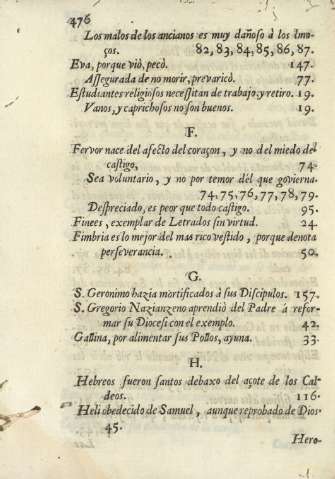 476
Los malos de los ancianos es muy dañoso à los Imo-
ços. 82,83,84,85,86,87.
Eva, porque viò, pecò. 147.
Assegurada de no morir, prevaricò. 77.
Estudiantes religiosos necessitan de trabajo, y retiro. 19.
Vanos, y caprichosos no son buenos. 19.
F.
Fervor nace del afecto del coraçon, y no del miedo del
castigo, 74.
Sea voluntario, y no por temor del que govierna.
74,75,76,77,78,79.
Despreciado, es peor que todo castigo. 95.
Finees, exemplar de Letrados sin virtud. 24.
Fimbria es lo mejor del mas rico vestido, porque denota
perseverancia. 50.
G.
S. Geronimo hazia mortificados à sus Discipulos. 157.
S. Gregorio Nazianzeno aprendiò del Padre à refor-
mar su Diocesi con el exemplo. 42.
Gallina, por alimentar sus Pollos, ayuna. 33.
H.
Hebreos fueron santos debaxo del açote de los Cal-
deos. 116.
Heli obedecido de Samuel, aunque reprobado de Dios.
45.
Hero-